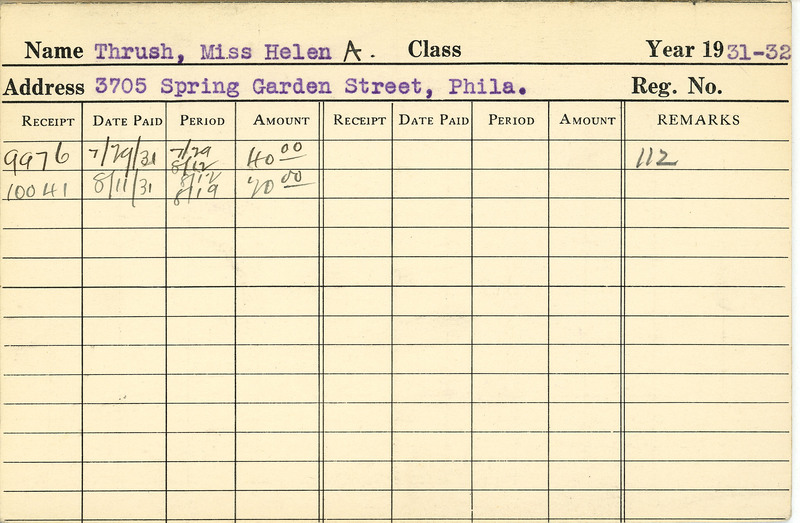 Name Thrush, Miss Helen A. Class Year 1931-32
Address 3705 Spring Garden Street, Phila. Reg. No.
RECEIPT DATE PAID PERIOD AMOUNT RECEIPT DATE PAID PERIOD AMOUNT REMARKS
9976 7/29/31 7/29 8/12 40 00 112
10041 8/11/31 8/12 8/19 20 00